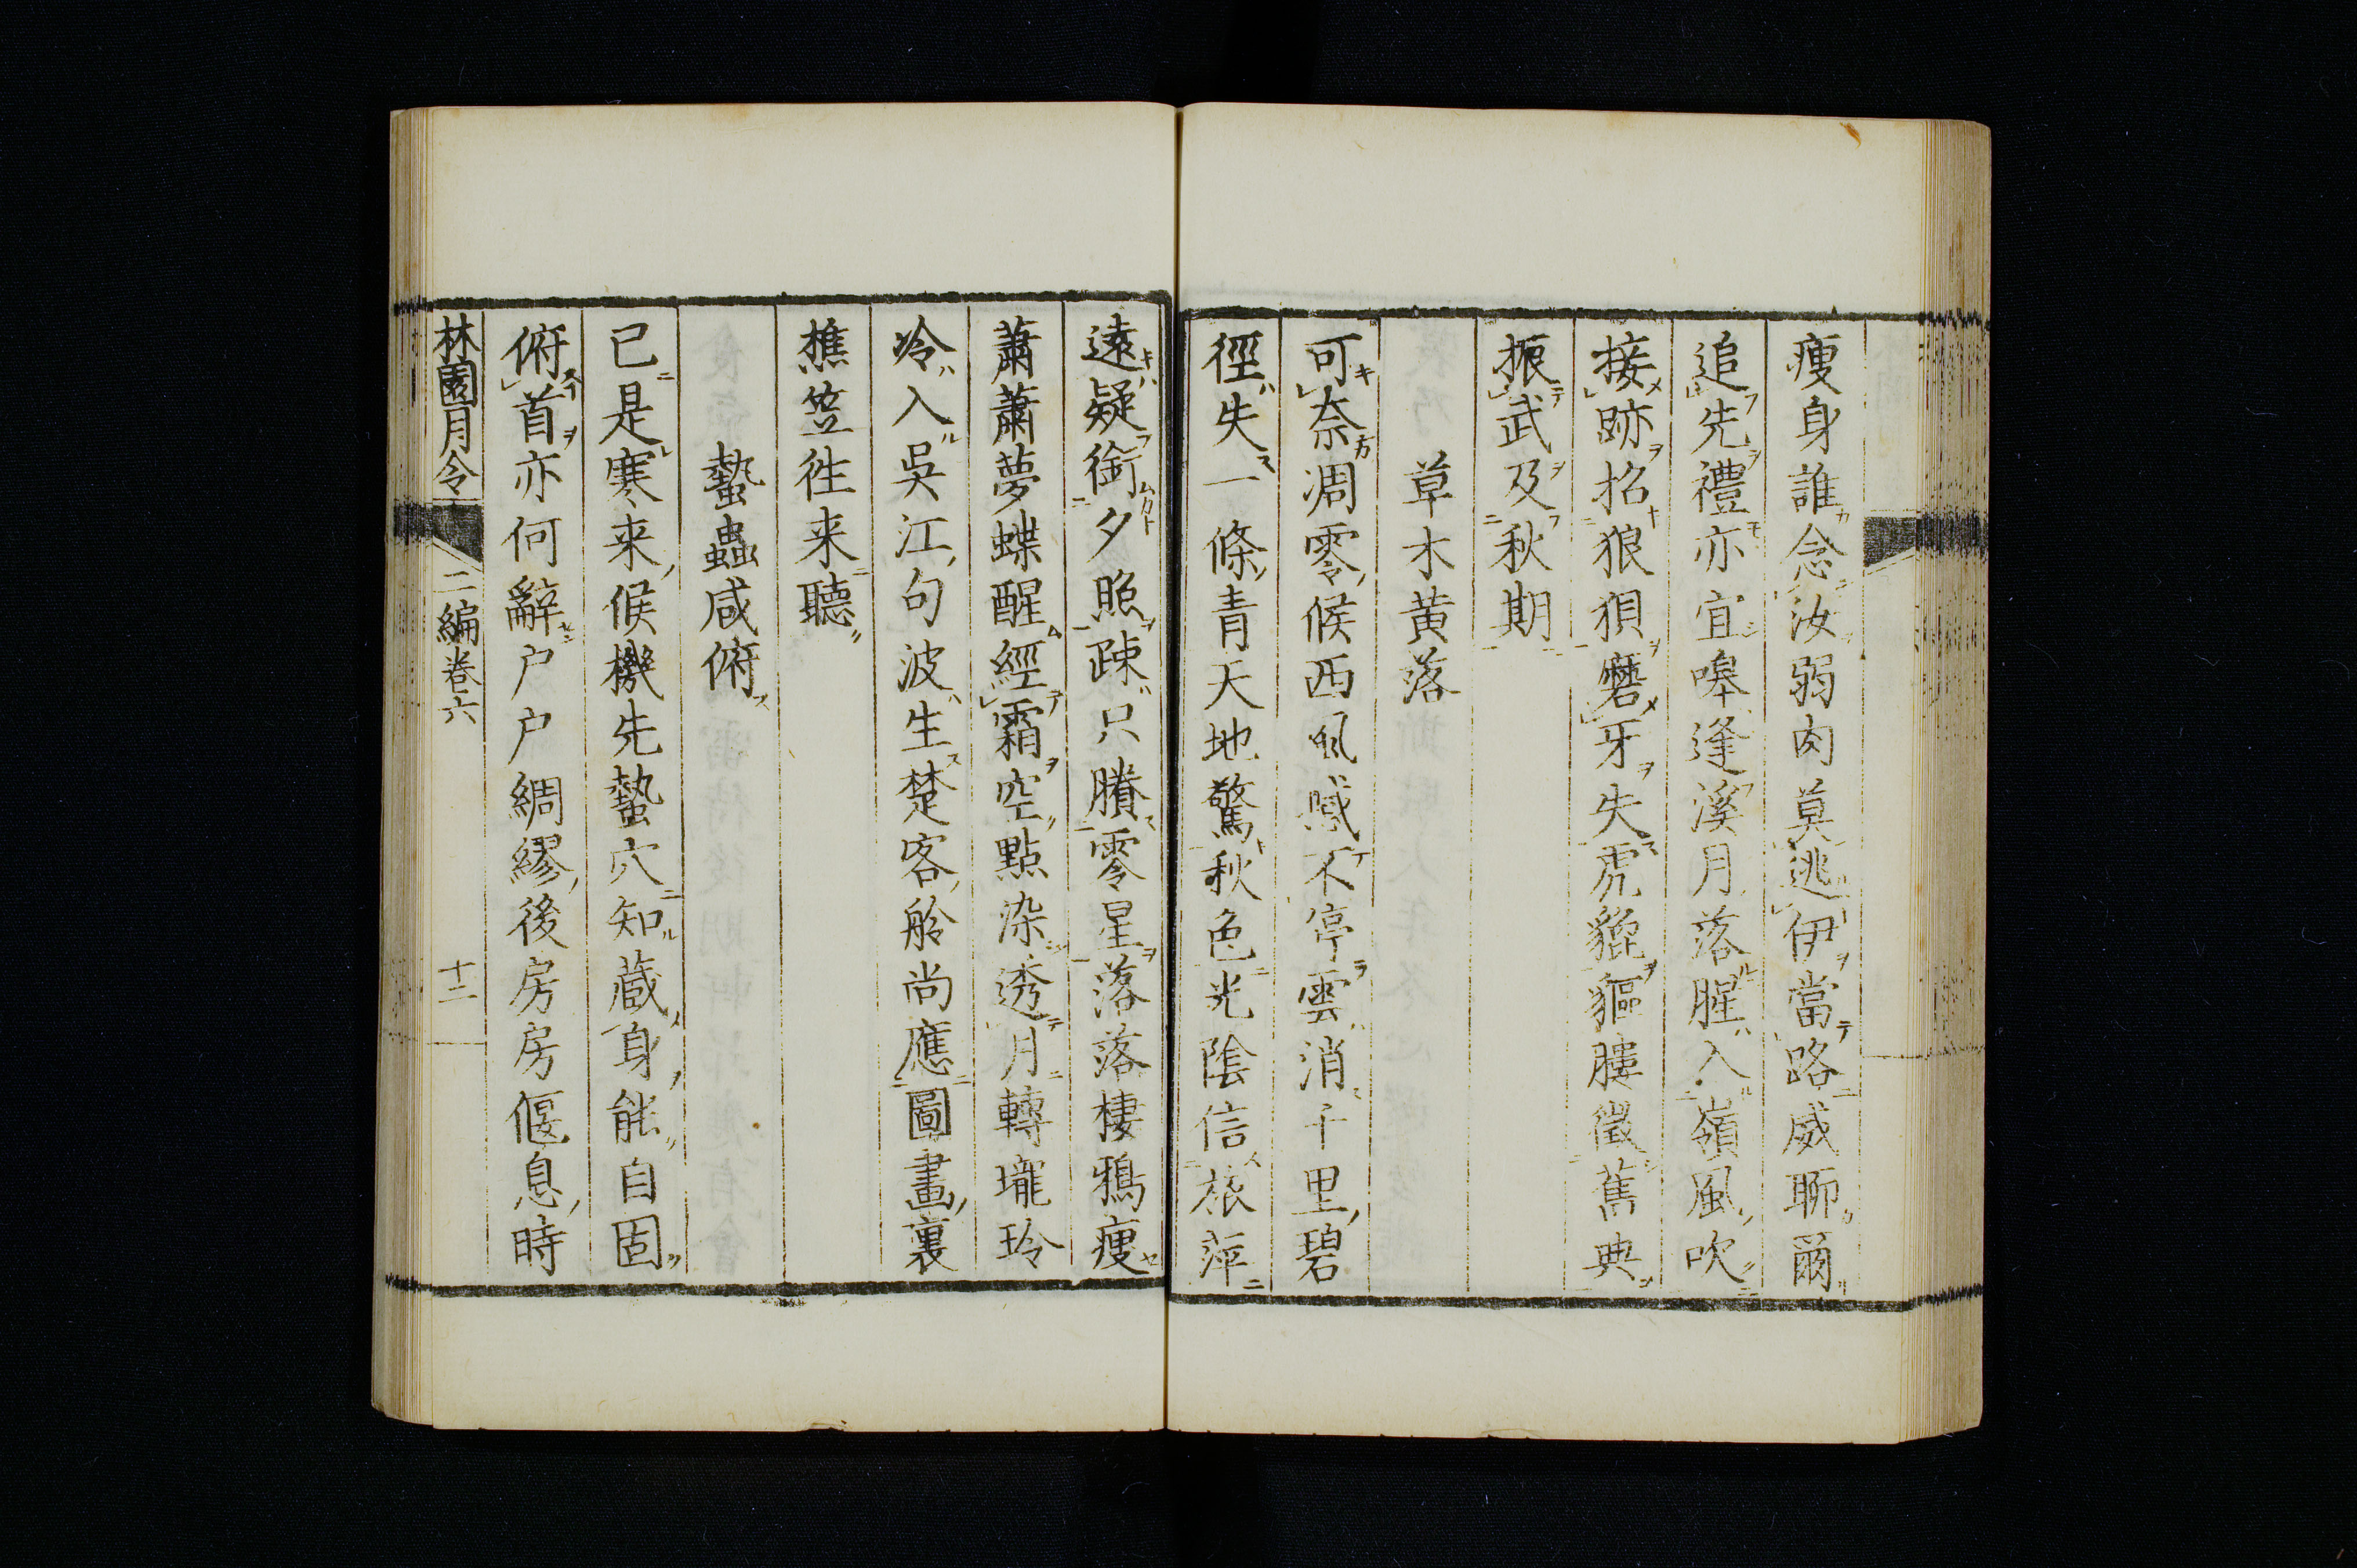 瘦身誰念汝弱肉莫逃伊當路威聊爾
追先禮亦宜嘷逢溪月落腥入嶺風吹
接跡招狼狽磨牙失虎貔貙膢徵舊典
振武及秋期
草木黄落
可奈凋零候西風感不停雲消千里碧
徑失一條青天地驚秋色光陰信旅萍
遠疑銜夕照疎只賸零星落落棲鴉瘦
蕭蕭夢蝶醒經霜空點染透月轉瓏玲
冷入吳江句波生楚客舲尚應圖畫裏
樵笠徃来聽
蟄蟲咸俯
已是寒来候機先蟄穴知蔵身能自固
俯首亦何辭户户綢繆後房房偃息時
林園月令 二編卷六 十二